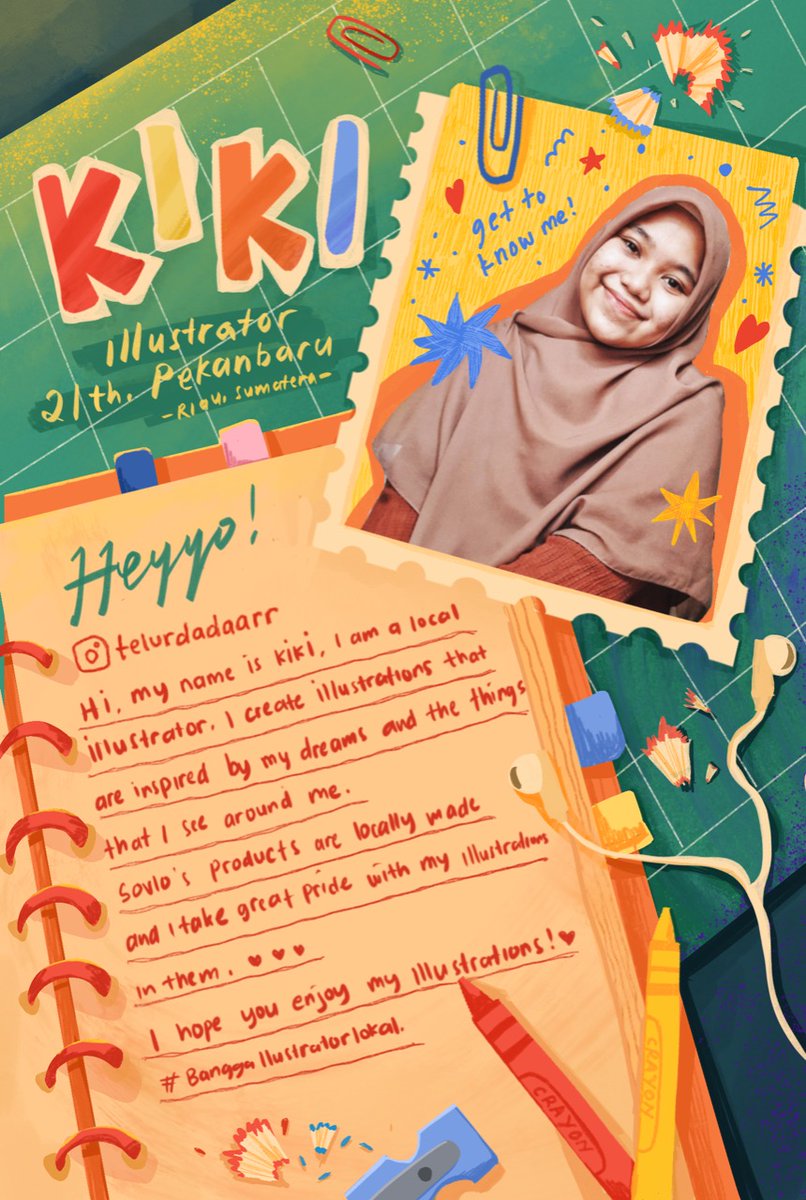 KIKI
illustrator
21th, Pekanbaru
-Riau, Sumatera-
get to
know me!
Heyyo!
telurdadaarr
Hi, my name is kiki, I am a local
illustrator. I create illustrations that
are inspired by my dreams and the things
that I see around me.
Sovlo's products are locally made
and I take great pride with my illustrations
in them.
I hope you enjoy my illustrations!
#Banggaillustratorlokal.
CRAYON
CRAYON